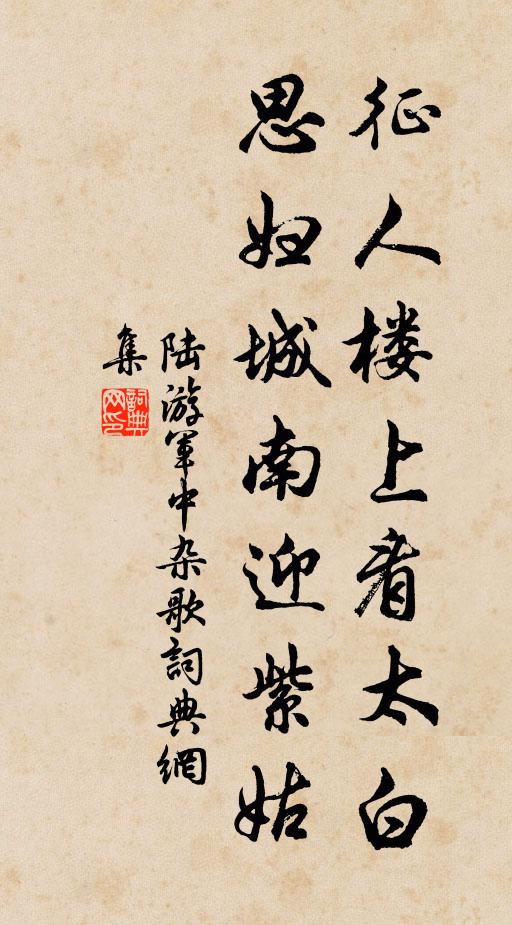 征人楼上看太白
思妇城南迎紫姑
陆游军中杂歌詞典網
集
詞典网印